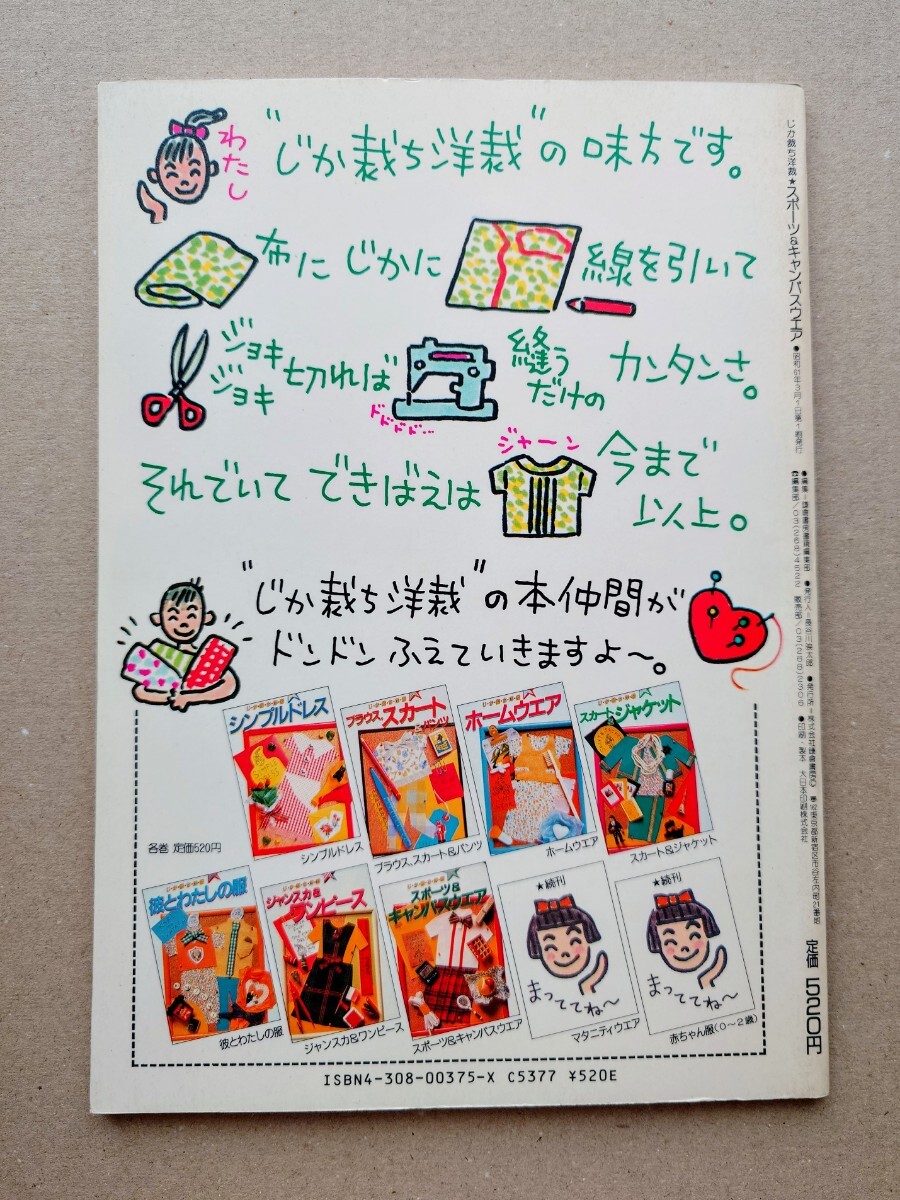 わたし
"じか裁ち洋裁"の味方です。
布にじかに 線を引いて
ジョキジョキ切れば 縫うだけの カンタンさ。
ドドドド…
ジャーン
それでいて できばえは 今まで以上。
"じか裁ち洋裁"の本仲間が
ドンドンふえていきますよ〜。
シンプルドレス
ブラウス,スカート&パンツ
ホームウエア
スカート&ジャケット
各巻 定価520円
シンプルドレス
ブラウス,スカート&パンツ
ホームウエア
スカート&ジャケット
彼とわたしの服
ジャンスカ&ワンピース
スポーツ&キャンパスウエア
★続刊
まっててね〜
★続刊
まっててね〜
彼とわたしの服
ジャンスカ&ワンピース
スポーツ&キャンパスウエア
マタニティウエア
赤ちゃん服(0〜2歳)
ISBN4-308-00375-X C5377 ¥520E
じか裁ち洋裁★スポーツ&キャンパスウエア
●昭和61年3月1日第1刷発行
●編集=鎌倉書房書籍編集部
●発行人=長谷川映太郎
●発行所=株式会社鎌倉書房© 東京都新宿区市谷左内町21番地
☎編集部/03(268)4522 販売部/03(268)2306
●印刷・製本 大日本印刷株式会社
定価 520円